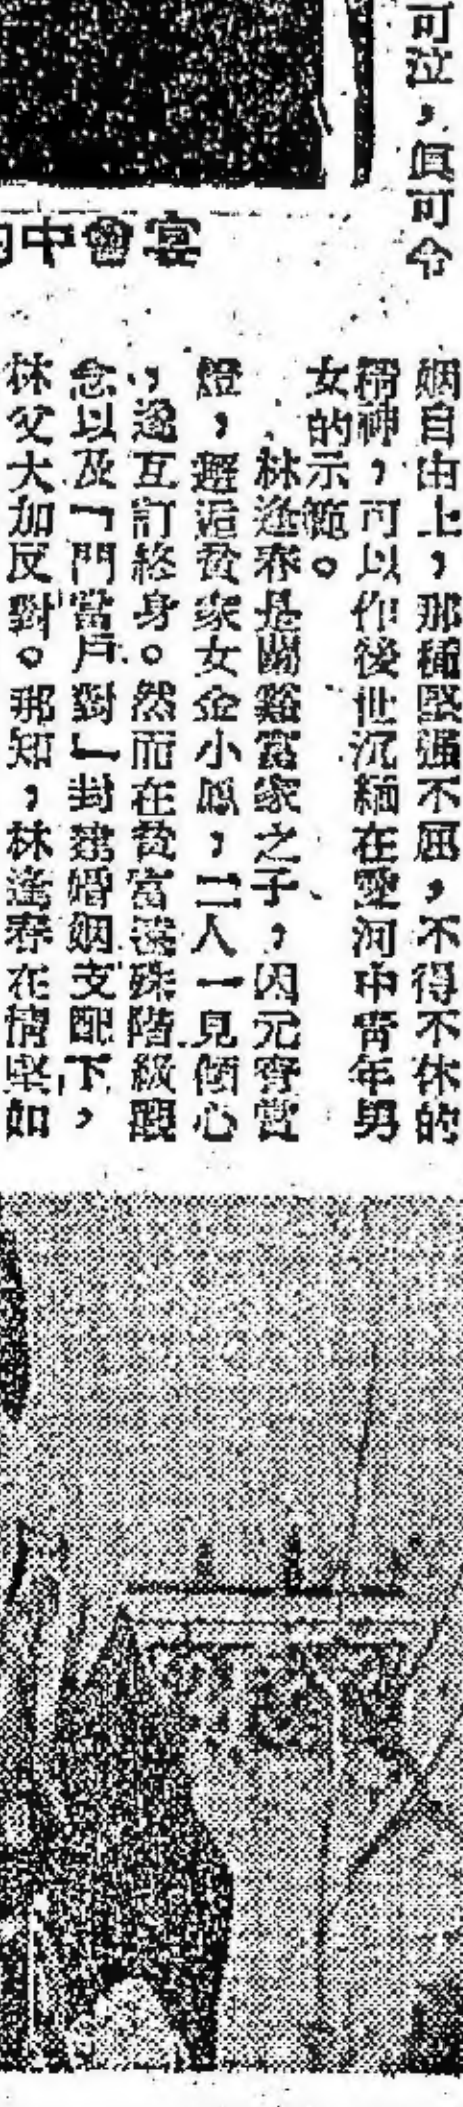 可泣，眞可令
宴會中的
姻自由上，那種堅強不屈，不得不休的
精神，可以作後世沉緬在愛河中青年男
女的示範。
林逢春是關谿富家之子，因元宵賞
燈，邂逅貧家女金小鳳，二人一見傾心
，遂互訂終身。然而在貧富懸殊階級觀
念以及「門當戶對」封建婚姻支配下，
林父大加反對。那知，林逢春在情堅如